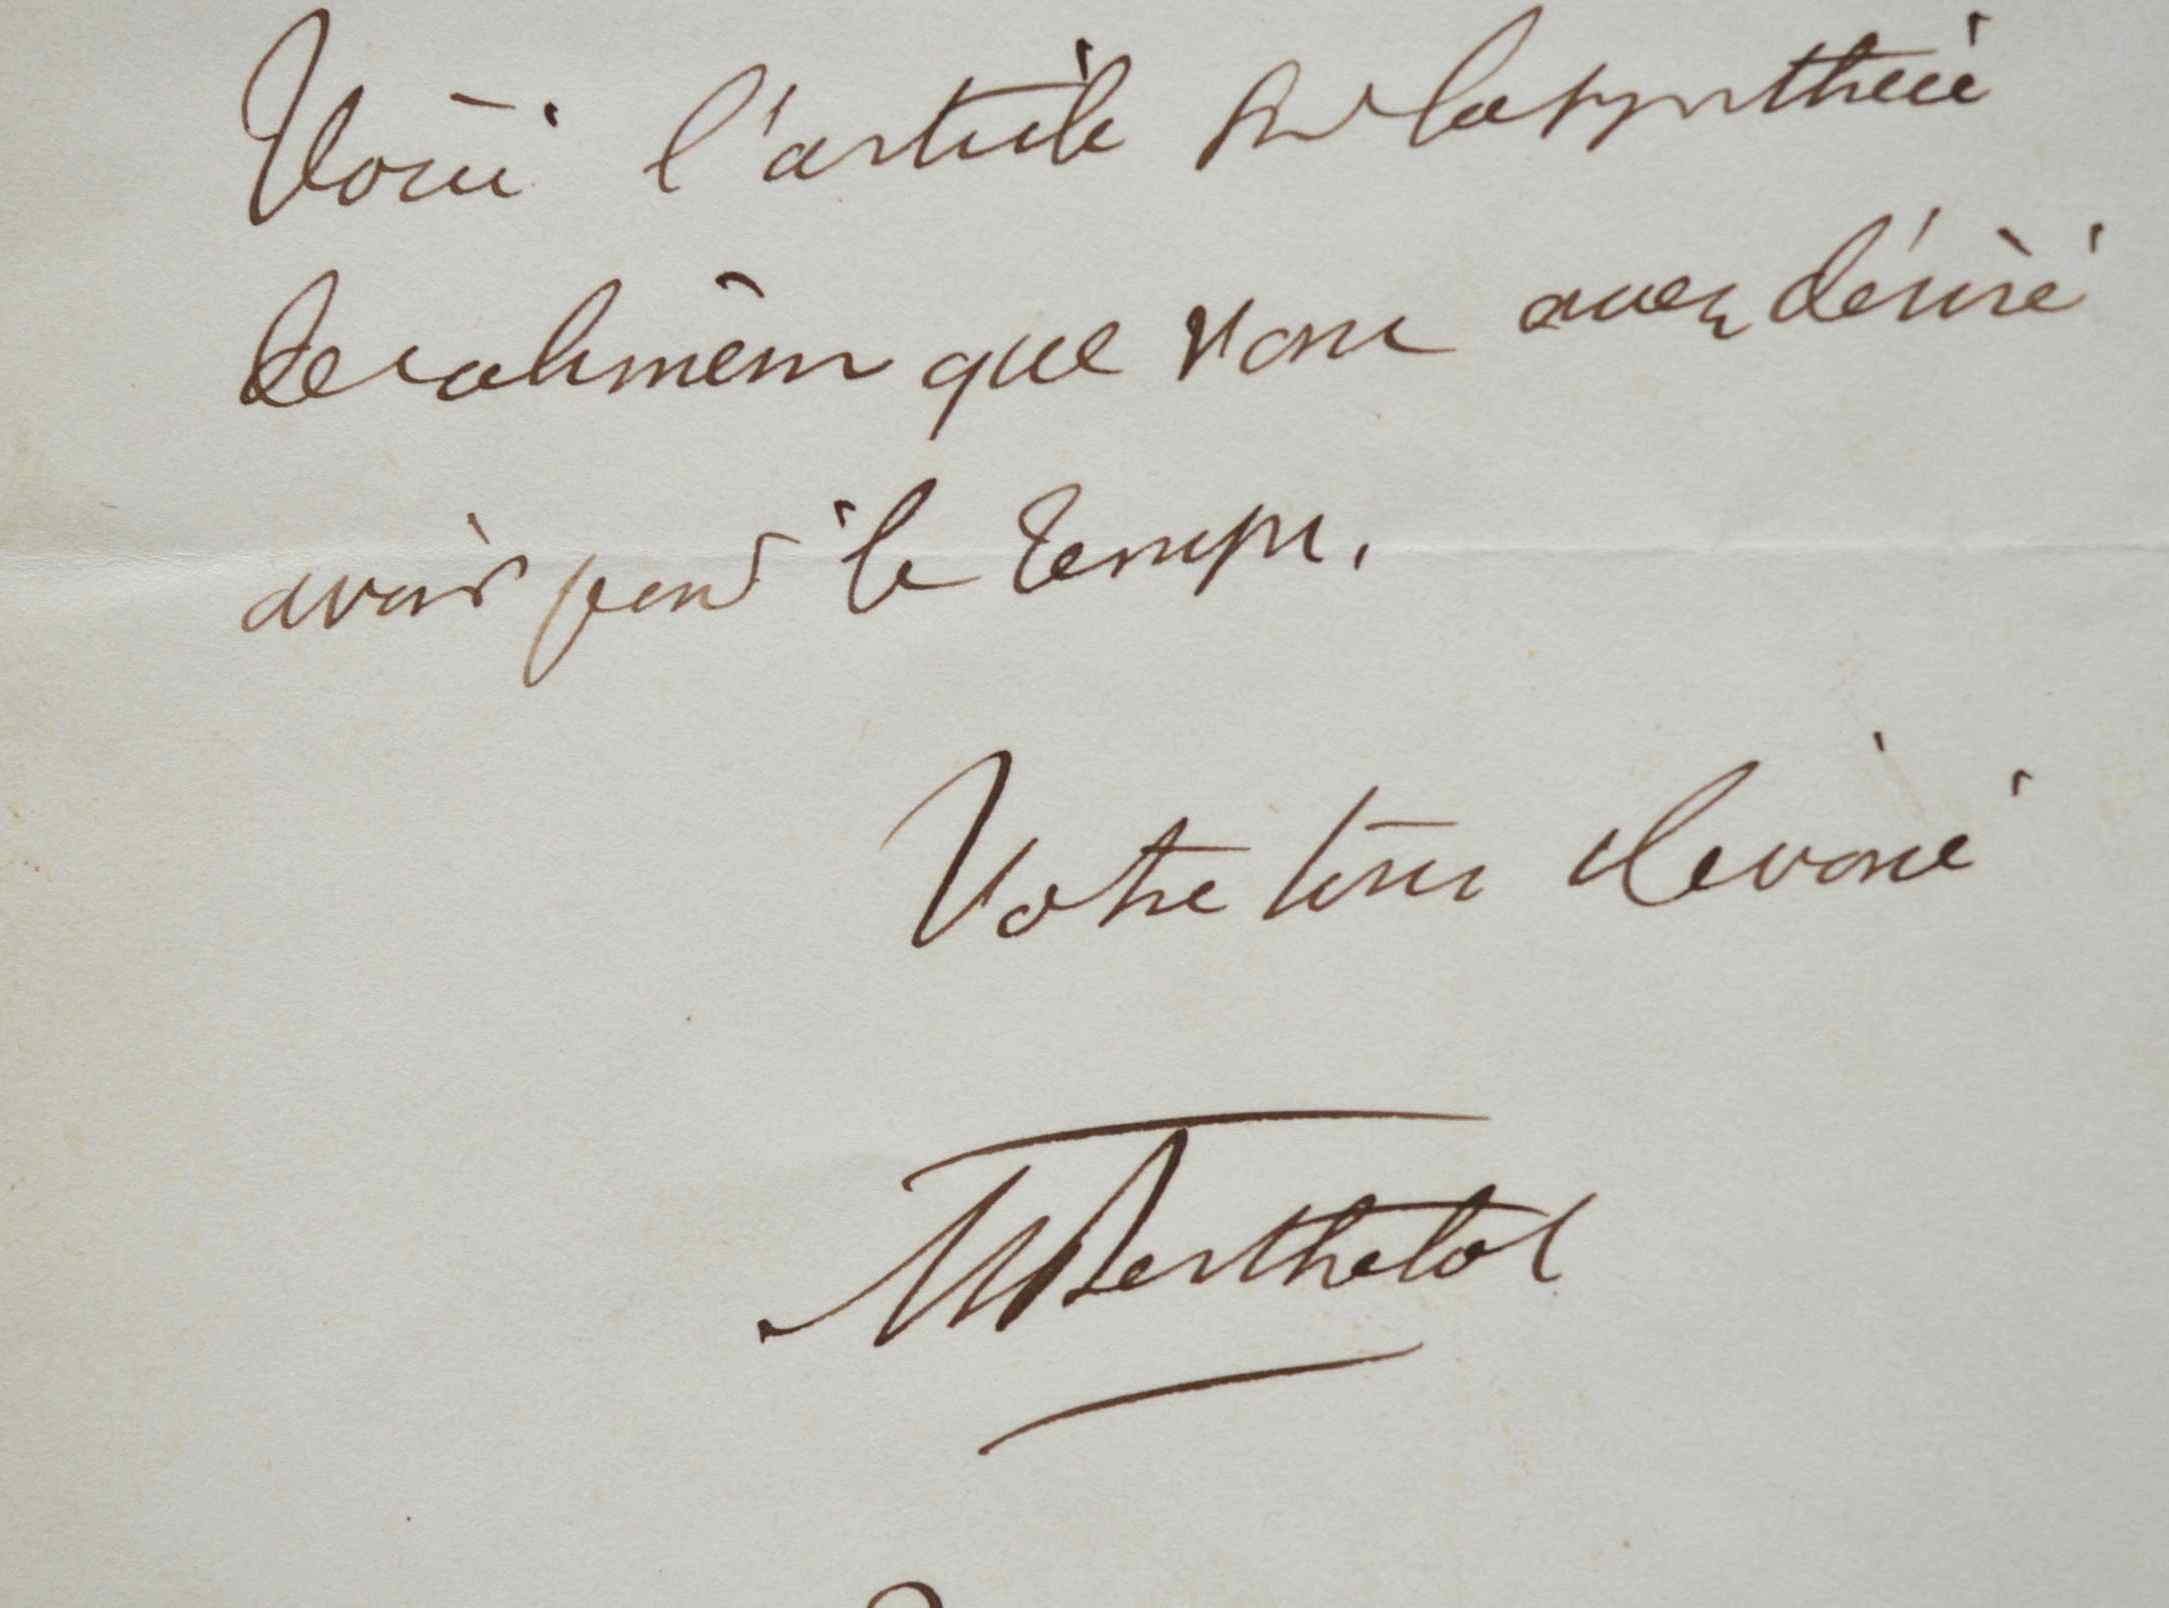 Voici l'article sur la synthèse
des aliments que vous avez désiré
avoir pour le Temps.
Votre tout dévoué
M Berthelot